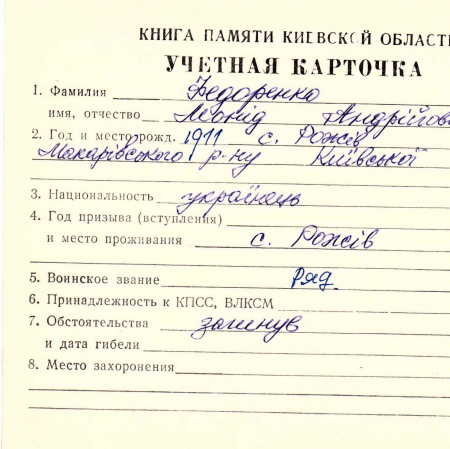 КНИГА ПАМЯТИ КИЕВСКОЙ ОБЛАСТИ
УЧЕТНАЯ КАРТОЧКА
1. Фамилия Федоренко
имя, отчество Леонід Андрійов
2. Год и место рожд. 1911 с. Рожів
Макарівського р-ну Київської
3. Национальность українець
4. Год призыва (вступления)
и место проживания с. Рожів
5. Воинское звание ряд.
6. Принадлежность к КПСС, ВЛКСМ
7. Обстоятельства загинув
и дата гибели
8. Место захоронения